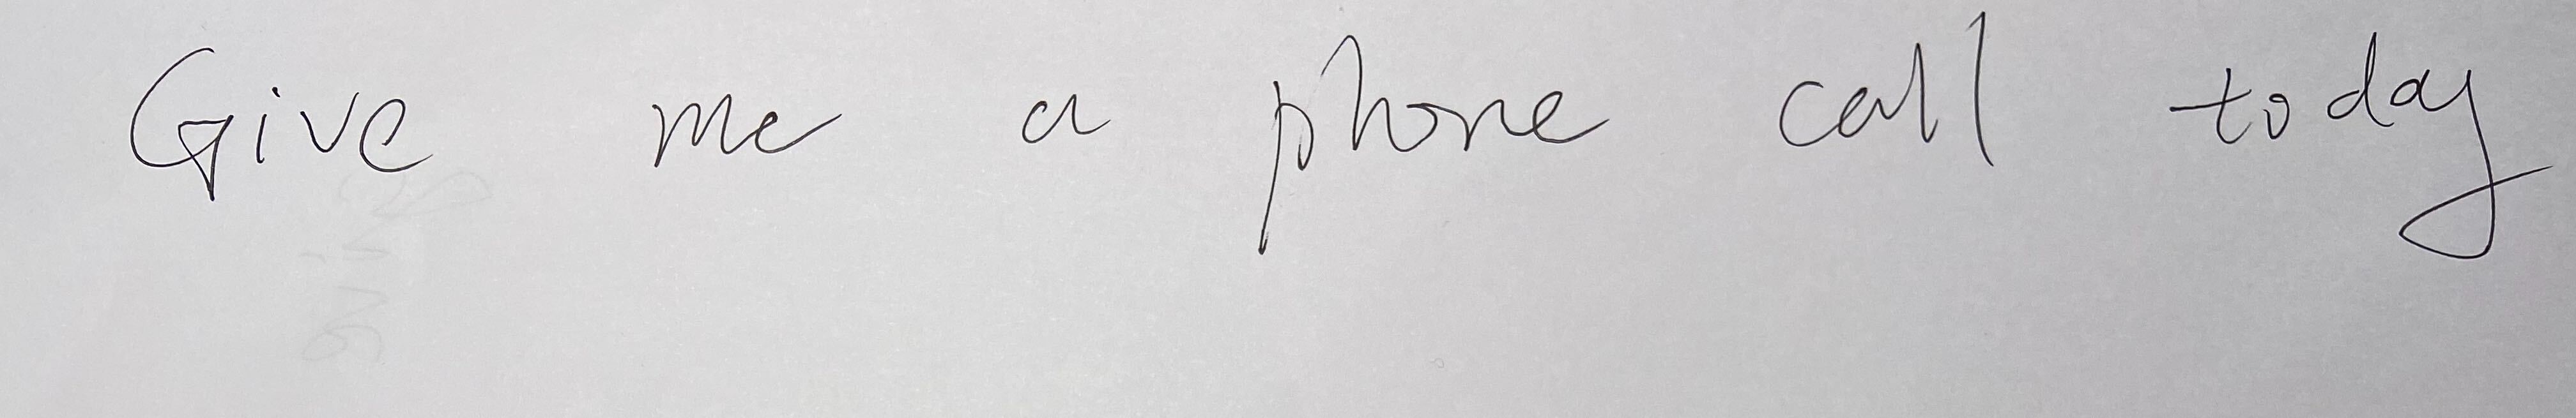 Give me a phone call today